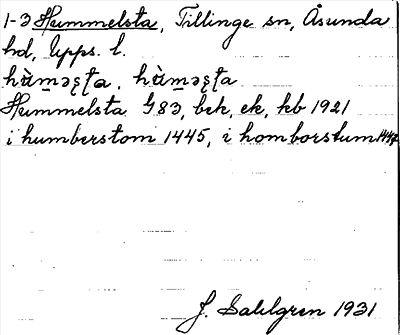 1-3 Hummelsta, Tillinge sn, Åsunda
hd, Upps. l.
hùməʂʈa, hùməʂʈa
Hummelsta G83, bek, ek, kb 1921
i humberstom 1445, i homborstum 1447
J. Sahlgren 1931